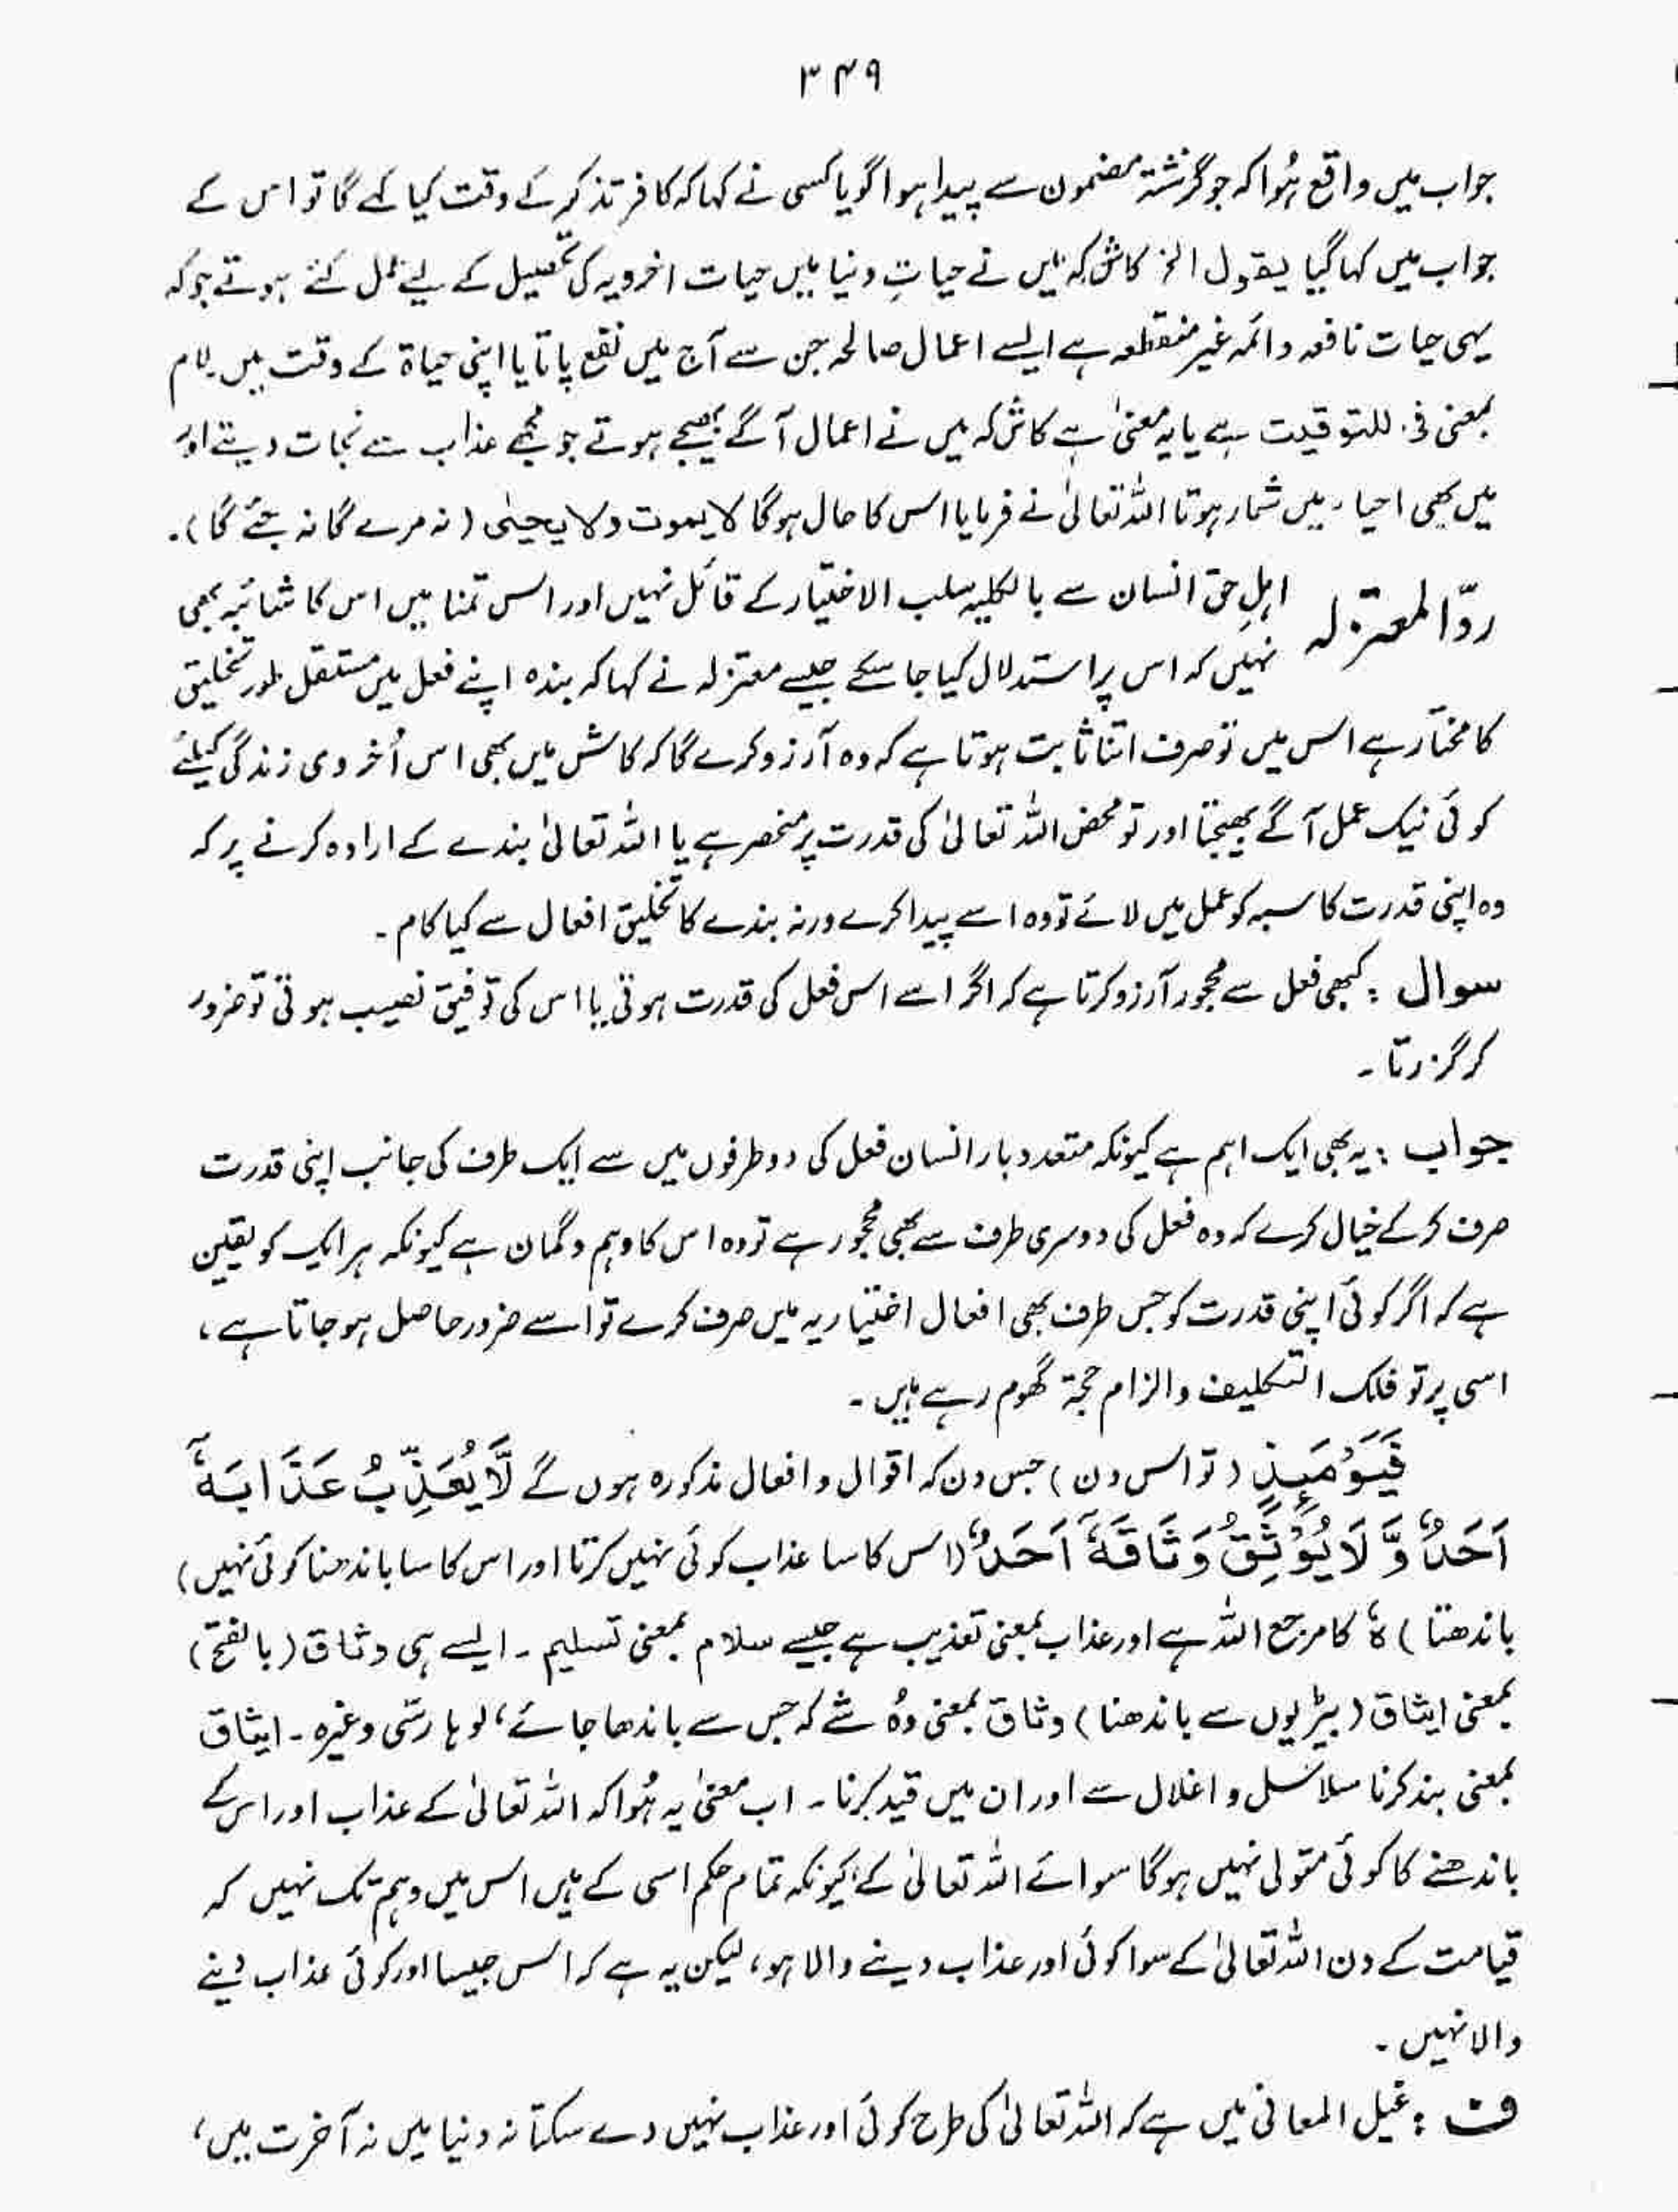 ۳۴۹
جواب میں واقع ہُوا کہ جو گزشتہ مضمون سے پیدا ہوا گویا کسی نے کہا کہ کافر تذکیر کے وقت کیا کہے گا تو اس کے
جواب میں کہا گیا یقول الخ کاش کہ میں نے حیاتِ دنیا میں حیات اخرویہ کی تحصیل کے لیے عمل کئے ہوتے جو کہ
یہی حیات نافعہ دائمہ غیر منقطعہ ہے ایسے اعمال صالحہ جن سے آج میں نفع پاتا یا اپنی حیاۃ کے وقت میں لام
بمعنی فی للتوقیت ہے یا یہ معنیٰ ہے کاش کہ میں نے اعمال آگے بھیجے ہوتے جو مجھے عذاب سے نجات دیتے اور
میں بھی احیاء میں شمار ہوتا اللہ تعالیٰ نے فرمایا اس کا حال ہوگا لا یموت ولا یحییٰ (نہ مرے گا نہ جئے گا)۔
ردّ المعتزلہ اہلِ حق انسان سے بالکلیہ سلب الاختیار کے قائل نہیں اور اس تمنا میں اس کا شائبہ بھی
نہیں کہ اس پر استدلال کیا جا سکے جیسے معتزلہ نے کہا کہ بندہ اپنے فعل میں مستقل طور تخلیق
کا مختار ہے اس میں تو صرف اتنا ثابت ہوتا ہے کہ وہ آرزو کرے گا کہ کاش میں بھی اس اُخروی زندگی کیلئے
کوئی نیک عمل آگے بھیجتا اور تو محض اللہ تعالیٰ کی قدرت پر منحصر ہے یا اللہ تعالیٰ بندے کے ارادہ کرنے پر کہ
وہ اپنی قدرت کاسبہ کو عمل میں لائے تو وہ اسے پیدا کرے ورنہ بندے کا تخلیق افعال سے کیا کام۔
سوال : کبھی فعل سے مجبور آرزو کرتا ہے کہ اگر اسے اس فعل کی قدرت ہوتی یا اس کی توفیق نصیب ہوتی تو ضرور
کر گزرتا۔
جواب : یہ بھی ایک اہم ہے کیونکہ متعدد بار انسان فعل کی دو طرفوں میں سے ایک طرف کی جانب اپنی قدرت
صرف کر کے خیال کرے کہ وہ فعل کی دوسری طرف سے بھی مجبور ہے تو وہ اس کا وہم و گمان ہے کیونکہ ہر ایک کو یقین
ہے کہ اگر کوئی اپنی قدرت کو جس طرف بھی افعال اختیاریہ میں صرف کرے تو اسے ضرور حاصل ہو جاتا ہے ،
اسی پر تو فلک التکلیف والزام حجۃ گھوم رہے ہیں۔
فَیَوْمَئِذٍ (تو اس دن) جس دن کہ اقوال و افعال مذکورہ ہوں گے لَّا یُعَذِّبُ عَذَابَهٗٓ
اَحَدٌ وَّ لَا یُوْثِقُ وَثَاقَهٗٓ اَحَدٌ (اس کا سا عذاب کوئی نہیں کرتا اور اس کا سا باندھنا کوئی نہیں)
باندھتا) هٗ کا مرجع اللہ ہے اور عذاب بمعنی تعذیب ہے جیسے سلام بمعنی تسلیم۔ ایسے ہی وثاق (بالفتح)
بمعنی ایثاق (بیڑیوں سے باندھنا) وثاق بمعنی وُہ شے کہ جس سے باندھا جائے، لوہا رسّی وغیرہ۔ ایثاق
بمعنی بند کرنا سلاسل و اغلال سے اور ان میں قید کرنا۔ اب معنیٰ یہ ہُوا کہ اللہ تعالیٰ کے عذاب اور اس کے
باندھنے کا کوئی متولی نہیں ہوگا سوائے اللہ تعالیٰ کے کیونکہ تمام حکم اسی کے ہیں اس میں وہم تک نہیں کہ
قیامت کے دن اللہ تعالیٰ کے سوا کوئی اور عذاب دینے والا ہو، لیکن یہ ہے کہ اس جیسا اور کوئی عذاب دینے
والا نہیں۔
ف : المعانی میں ہے کہ اللہ تعالیٰ کی طرح کوئی اور عذاب نہیں دے سکتا نہ دنیا میں نہ آخرت میں،